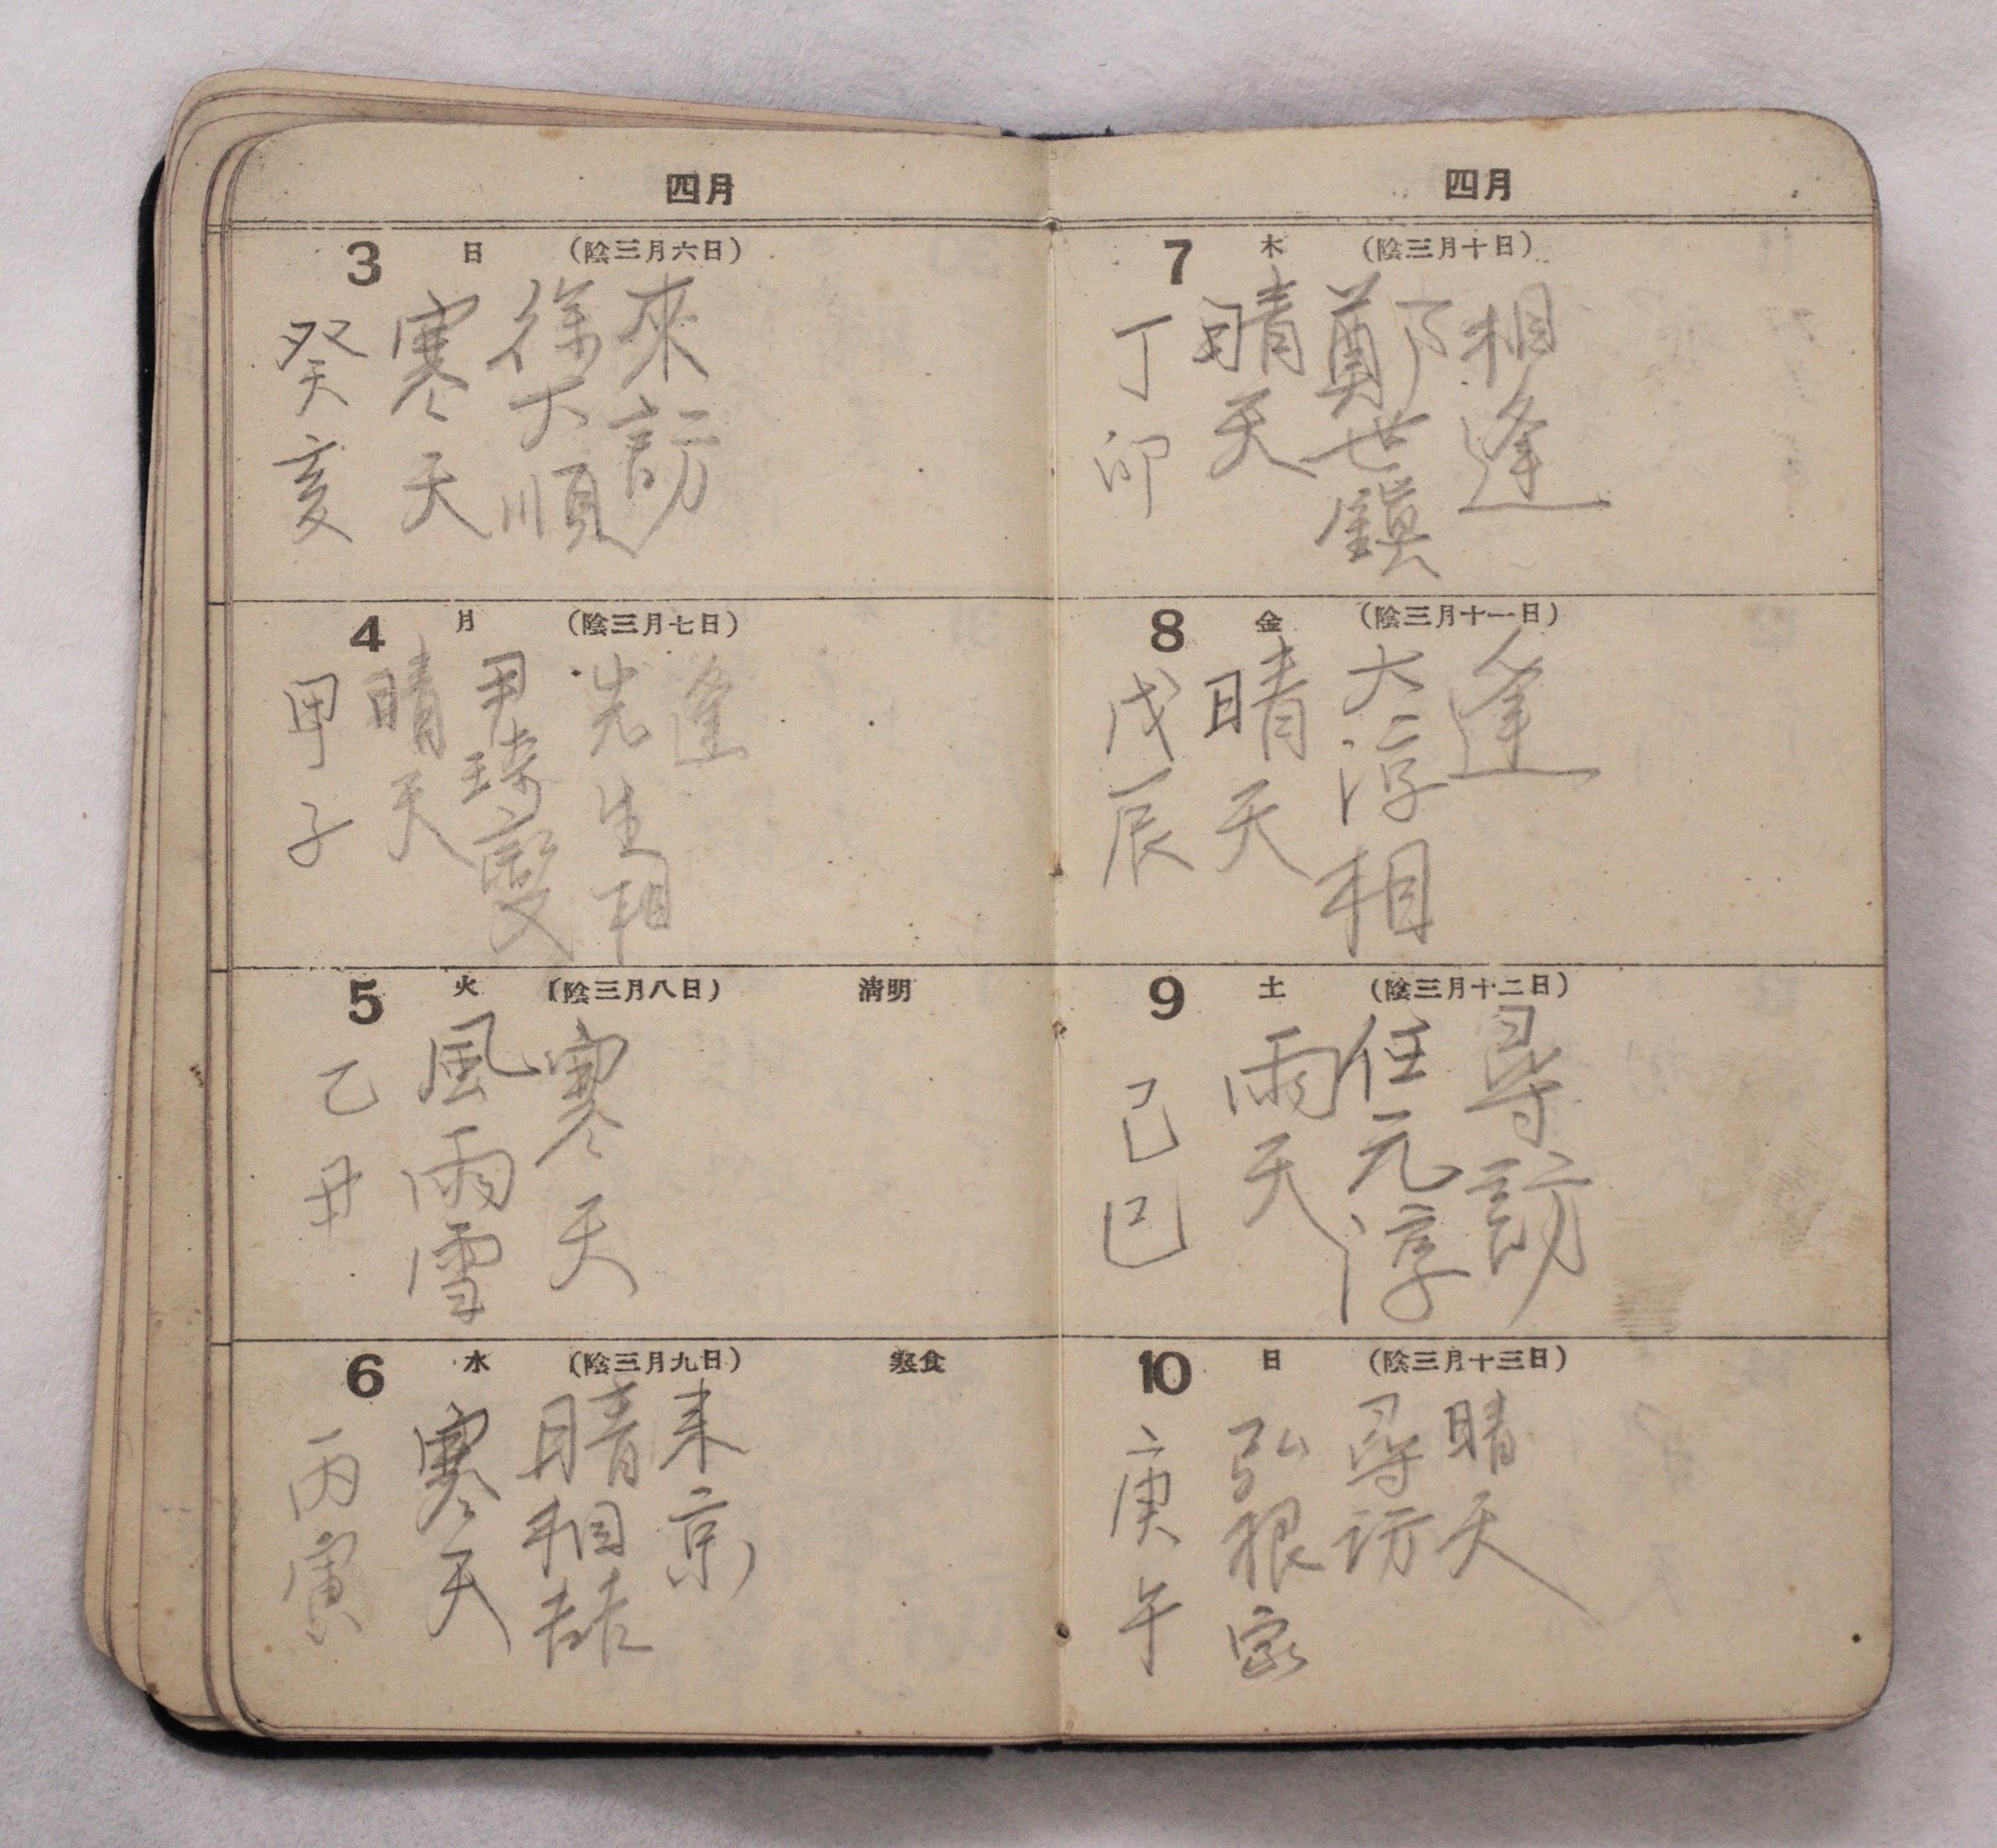 四月
3 日 (陰三月六日)
癸亥
寒天
徐大順
來訪
4 月 (陰三月七日)
甲子
晴天
尹琦燮
先生相
逢
5 火 (陰三月八日) 清明
乙丑
風雨雪
寒天
6 水 (陰三月九日) 寒食
丙寅
寒天
晴相喆
来京
四月
7 木 (陰三月十日)
丁卯
晴天
鄭世鎭
相逢
8 金 (陰三月十一日)
戊辰
晴天
大淳相
逢
9 土 (陰三月十二日)
己巳
雨天
任元淳
尋訪
10 日 (陰三月十三日)
庚午
弘根家
尋訪
晴天